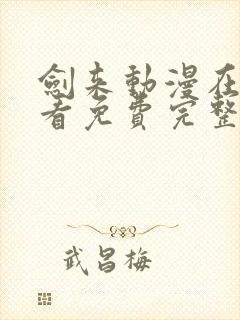 劍来動漫在
看免費完整
武昌梅